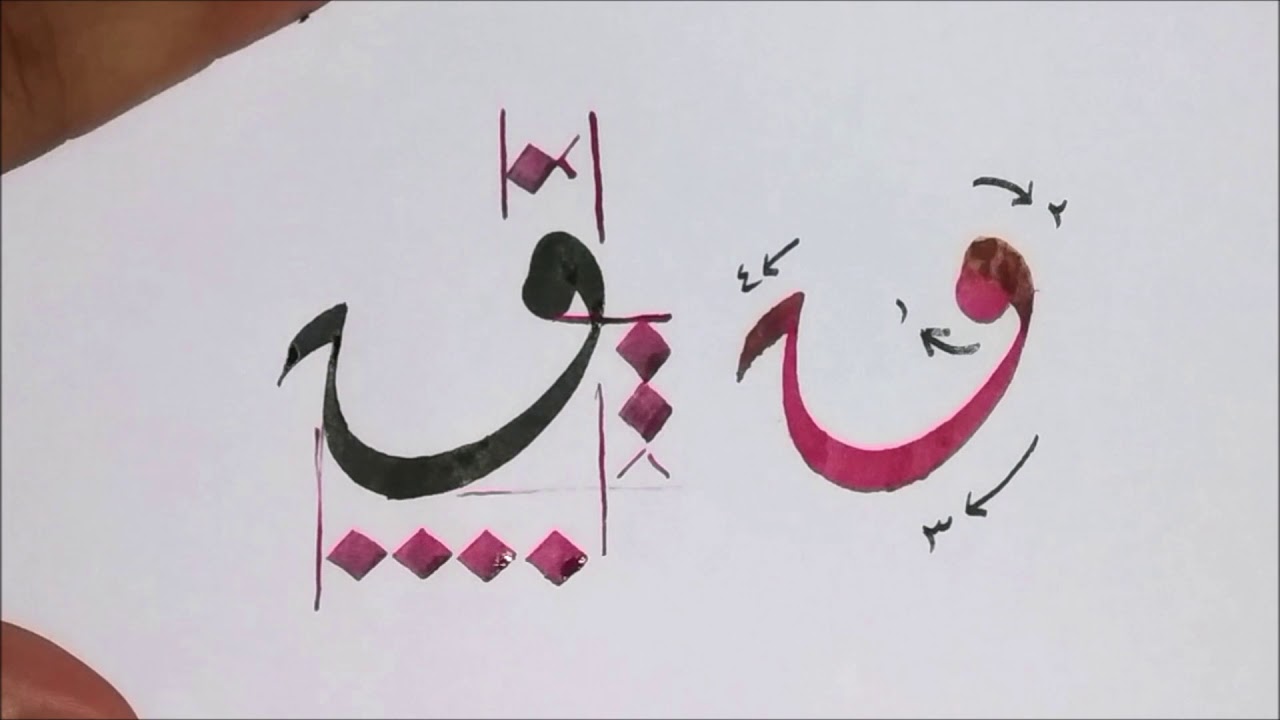 ٢
٤
ق ق
١
٣